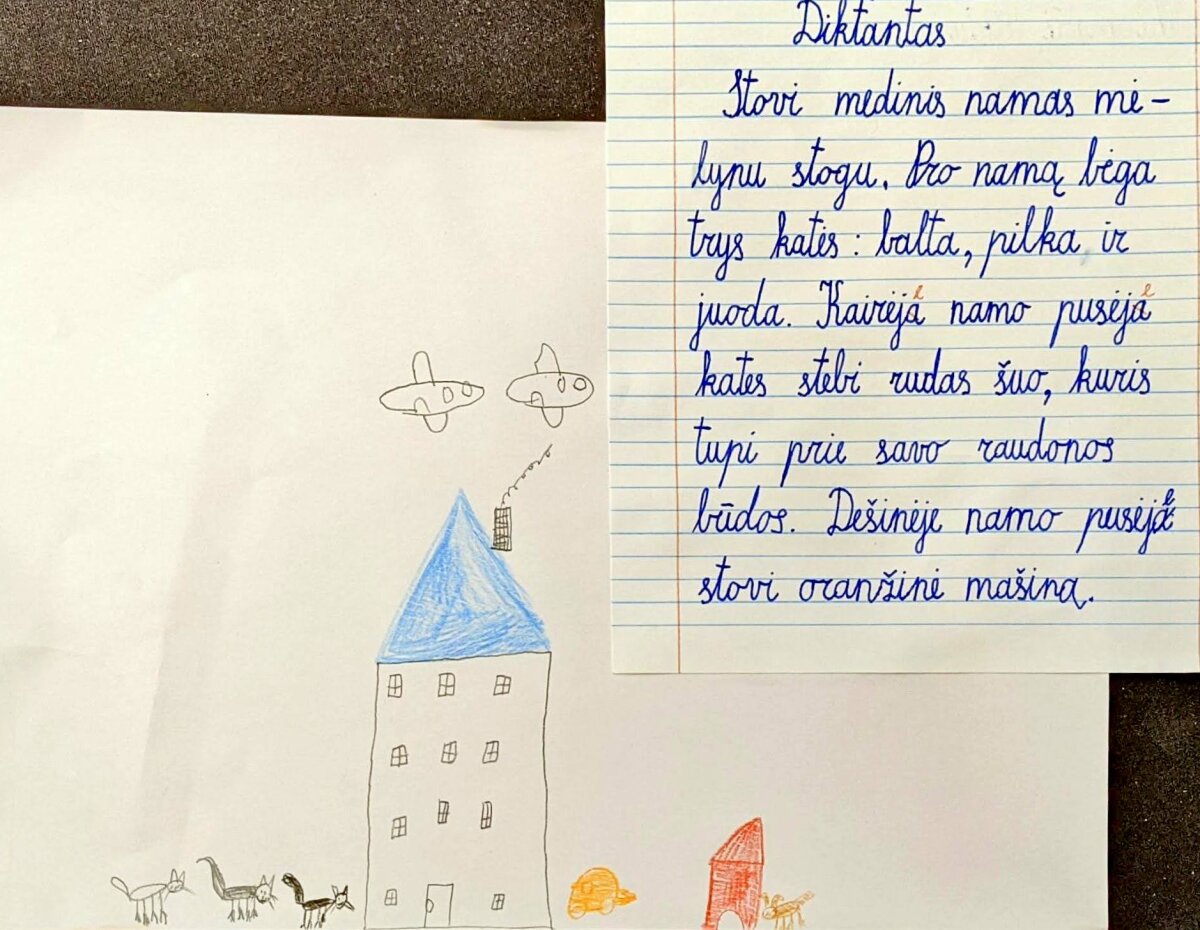 Diktantas
Stovi medinis namas mė-
lynu stogu. Pro namą bėga
trys katės: balta, pilka ir
juoda. Kairėja namo pusėja
e e
kates stebi rudas šuo, kuris
tupi prie savo raudonos
būdos. Dešinėje namo pusėje
stovi oranžinė mašina.